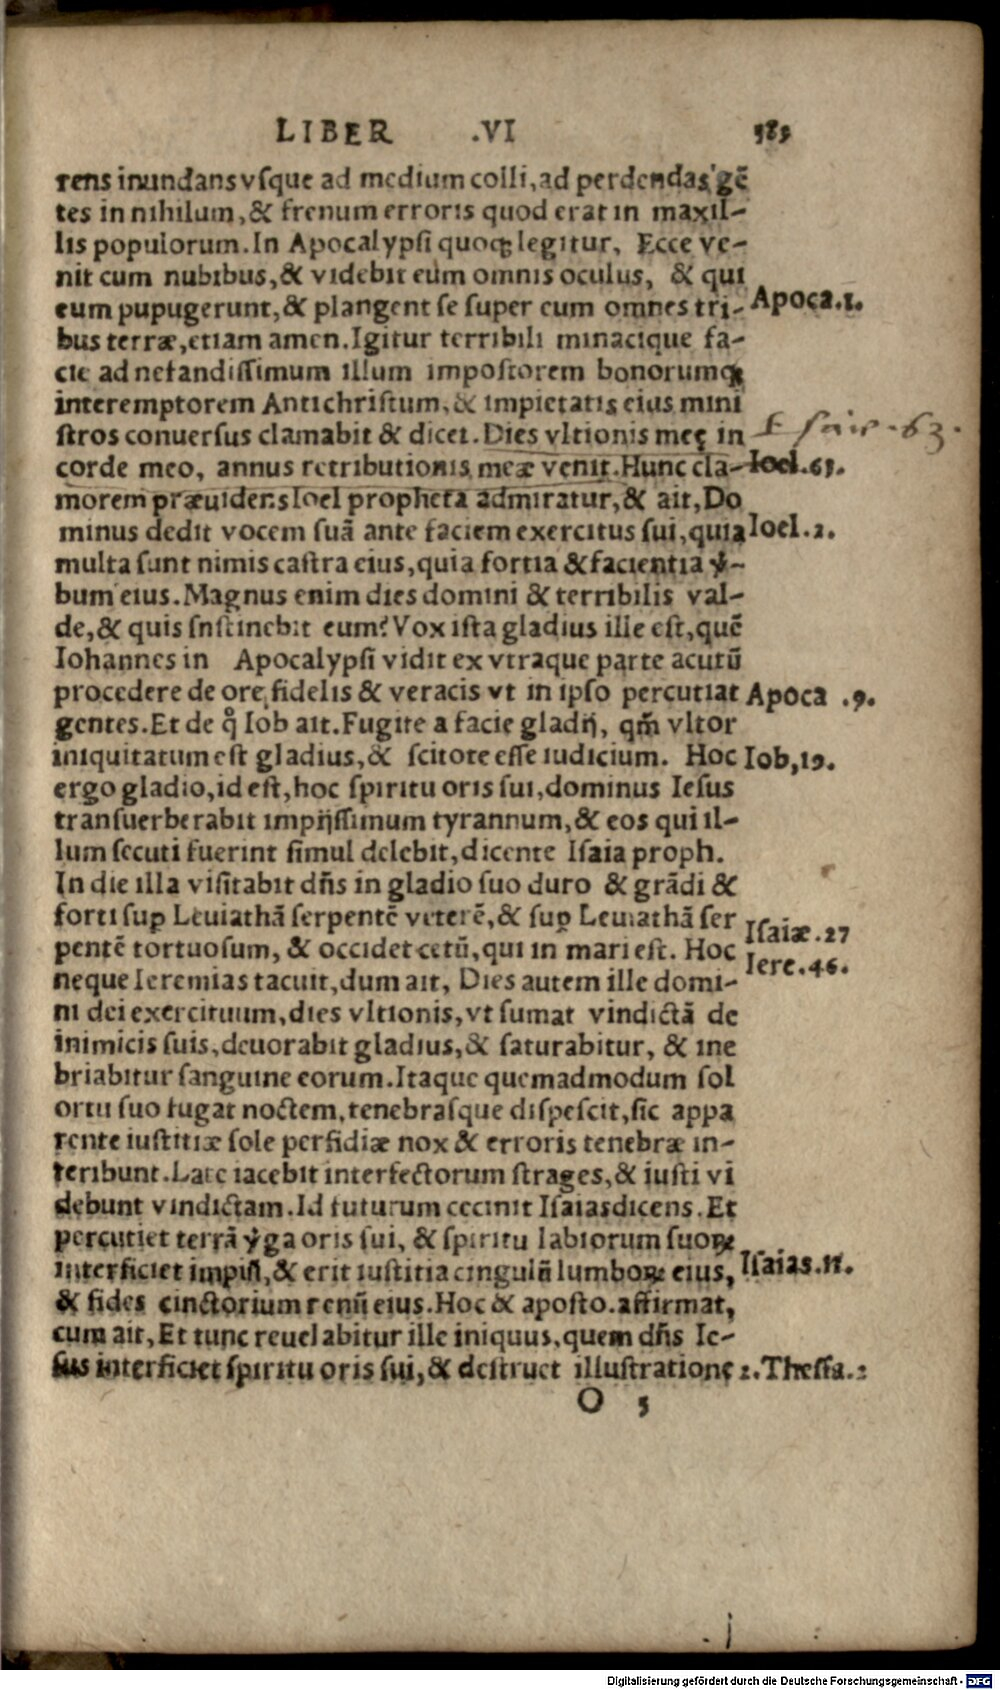 LIBER .VI 383
rens inundans vſque ad medium colli, ad perdendas gē
tes in nihilum, & frenum erroris quod erat in maxil-
lis populorum. In Apocalypſi quoqꝫ legitur, Ecce ve-
nit cum nubibus, & videbit eum omnis oculus, & qui
eum pupugerunt, & plangent ſe ſuper eum omnes tri- Apoca.1.
bus terræ, etiam amen. Igitur terribili minacique fa-
cie ad nefandiſſimum illum impoſtorem bonorumqꝫ
interemptorem Antichriſtum, & impietatis eius mini
ſtros conuerſus clamabit & dicet. Dies vltionis meę in Eſaie .63.
corde meo, annus retributionis meæ venit. Hunc cla- Ioel.63.
morem præuidens Ioel propheta admiratur, & ait, Do
minus dedit vocem ſuā ante faciem exercitus ſui, quia Ioel.2.
multa ſunt nimis caſtra eius, quia fortia & facientia ꝟ-
bum eius. Magnus enim dies domini & terribilis val-
de, & quis ſnſtinebit eum? Vox iſta gladius ille eſt, quē
Iohannes in Apocalypſi vidit ex vtraque parte acutū
procedere de ore fidelis & veracis vt in ipſo percutiat Apoca .9.
gentes. Et de q̊ Iob ait. Fugite a facie gladij, qm̄ vltor
iniquitatum eſt gladius, & ſcitote eſſe iudicium. Hoc Iob,19.
ergo gladio, id eſt, hoc ſpiritu oris ſui, dominus Ieſus
tranſuerberabit impijſſimum tyrannum, & eos qui il-
lum ſecuti fuerint ſimul delebit, dicente Iſaia proph.
In die illa viſitabit dn̄s in gladio ſuo duro & grādi &
forti ſup̱ Leuiathā ſerpentē veterē, & ſup̱ Leuiathā ſer Iſaiæ.27
pentē tortuoſum, & occidet cetū, qui in mari eſt. Hoc Iere.46.
neque Ieremias tacuit, dum ait, Dies autem ille domi-
ni dei exercituum, dies vltionis, vt ſumat vindictā de
inimicis ſuis, deuorabit gladius, & ſaturabitur, & ine
briabitur ſanguine eorum. Itaque quemadmodum ſol
ortu ſuo fugat noctem, tenebraſque diſpeſcit, ſic appa
rente iuſtitiæ ſole perfidiæ nox & erroris tenebræ in-
teribunt. Late iacebit interfectorum ſtrages, & iuſti vi
debunt vindictam. Id futurum cecinit Iſaias dicens. Et
percutiet terrā ꝟga oris ſui, & ſpiritu labiorum ſuoꝝ
interficiet impiū, & erit iuſtitia cingulū lumboꝝ eius, Iſaias.11.
& fides cinctorium renū eius. Hoc & apoſto. affirmat,
cum ait, Et tunc reuelabitur ille iniquus, quem dn̄s Ie-
ſus interficiet ſpiritu oris ſui, & deſtruet illuſtratione 2.Theſſa.2
O 5
Digitalisierung gefördert durch die Deutsche Forschungsgemeinschaft - DFG